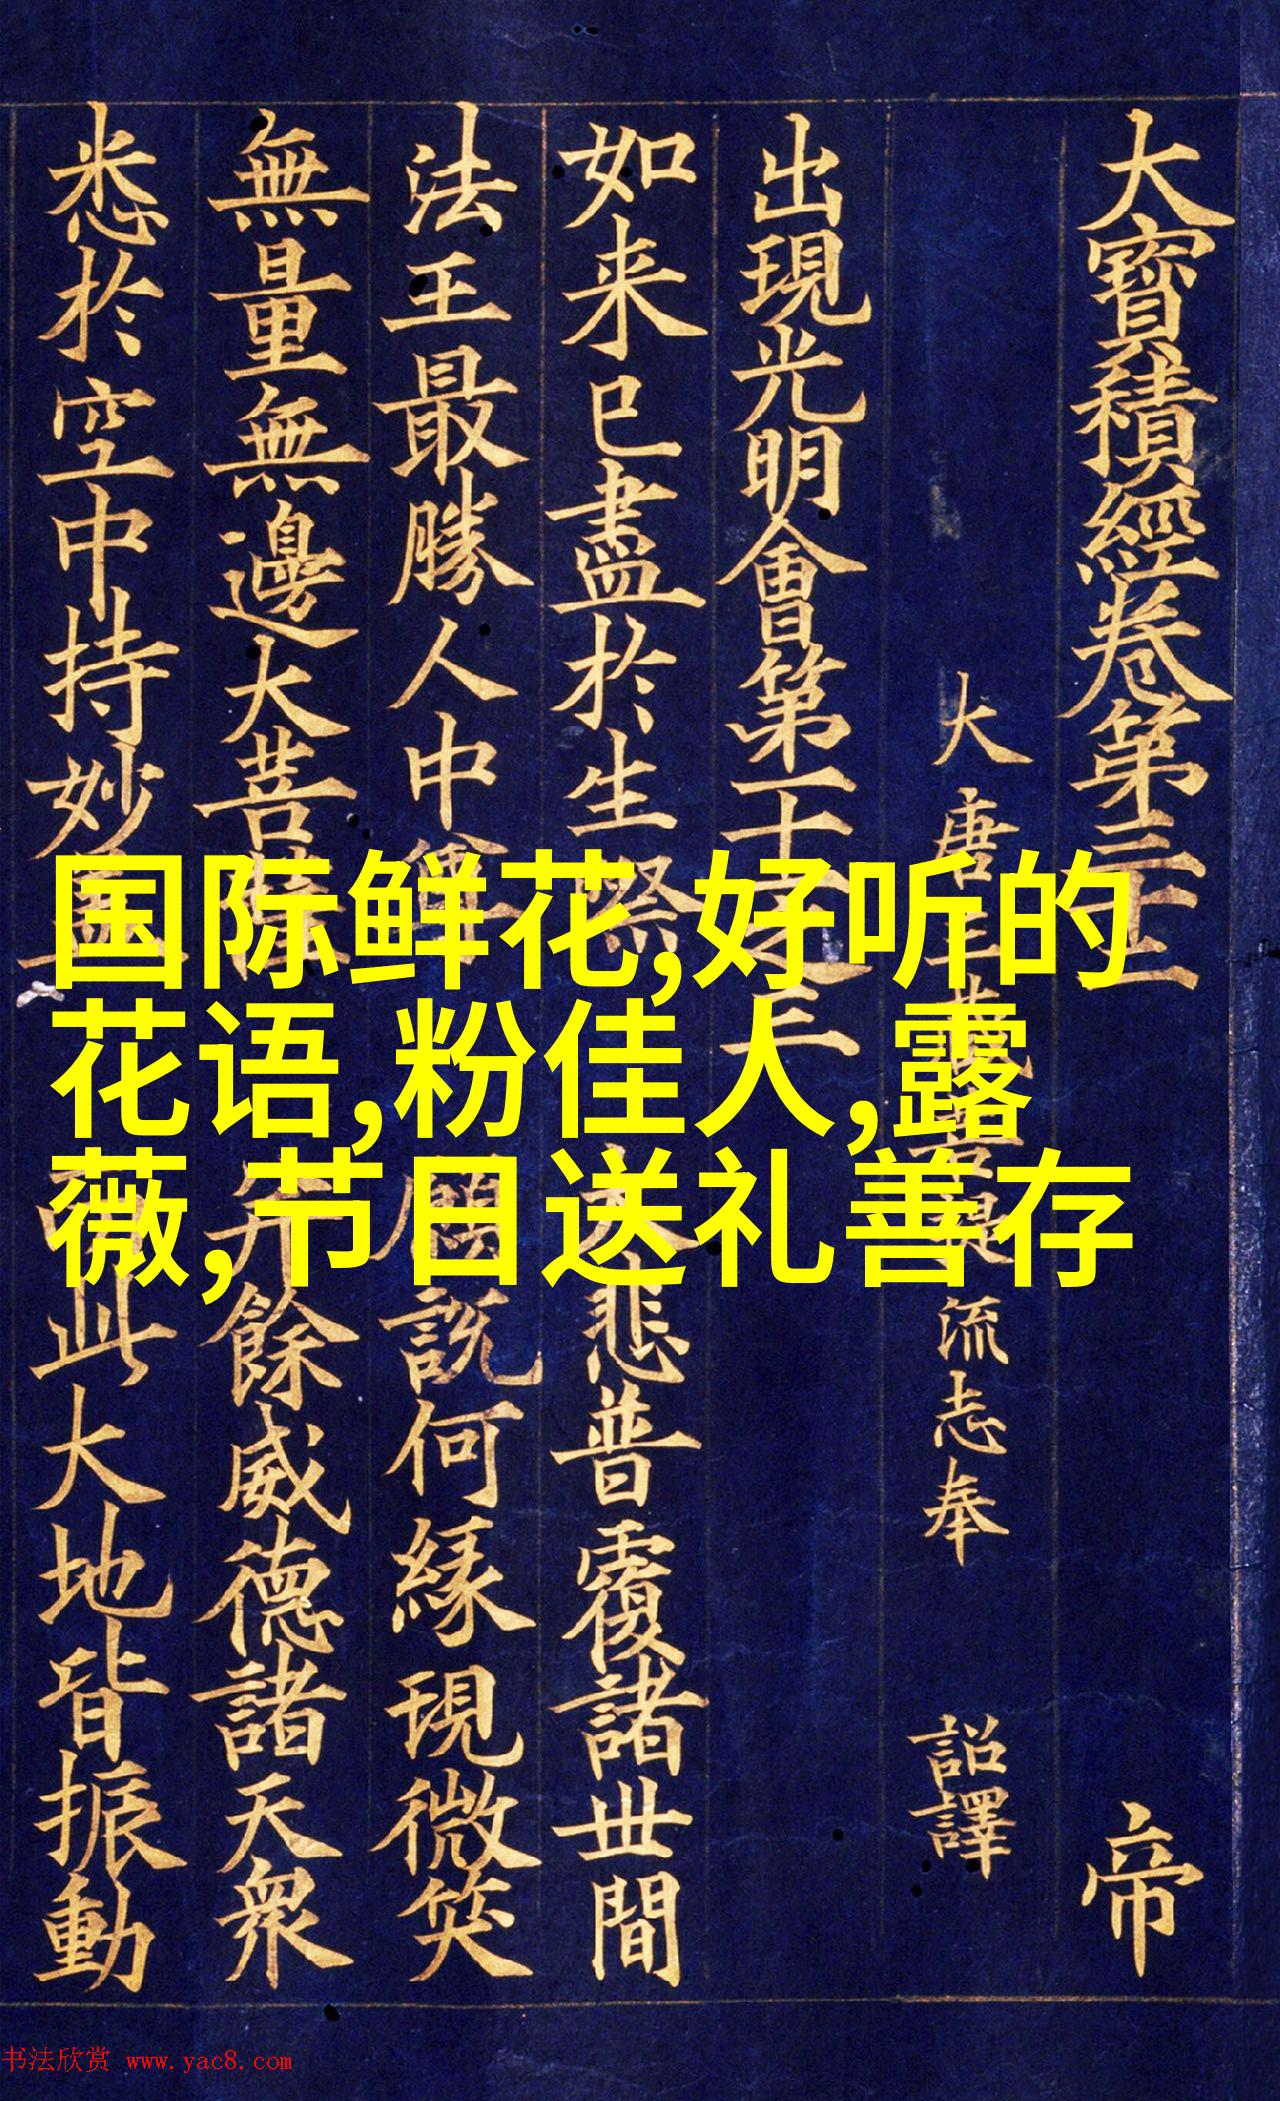 大寶積經卷第三十三
帝
大唐三藏菩提流志奉
詔譯
出現光明會第十一之三
如来已盡於生
悲普覆諸世間
法王最勝人中
說何緣現微笑
無量無邊大菩薩
餘威德諸天衆
悉於空中持妙
此大地皆振動
国际鲜花,好听的
花语,粉佳人,露
薇,节日送礼善存
书法欣赏 www.yac8.com